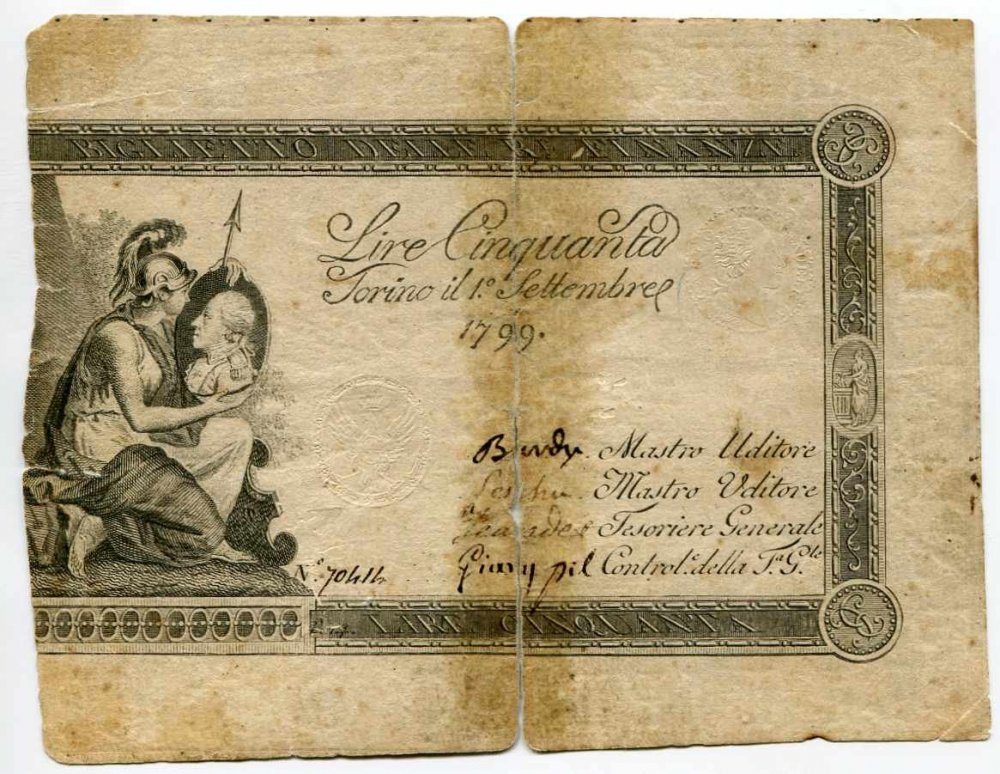 BIGLIETTO DELLE RE. FINANZE
Lire Cinquanta
Torino il 1.º Settembre
1799.
Mastro Uditore
Mastro Uditore
Tesoriere Generale
Nº 70414 Control.e della Ta. G.le
LIRE CINQUANTA